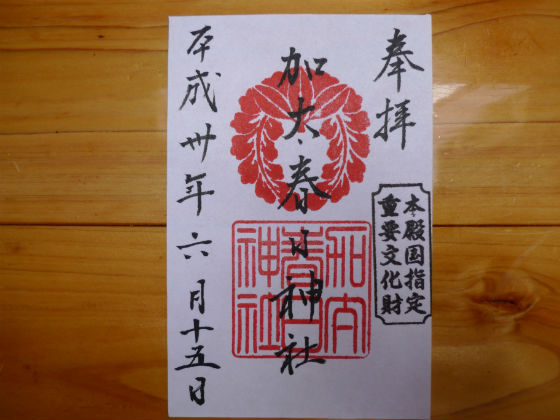 奉拝
本殿国指定
重要文化財
加太春日神社
加太
春日
神社
平成卅年六月十五日